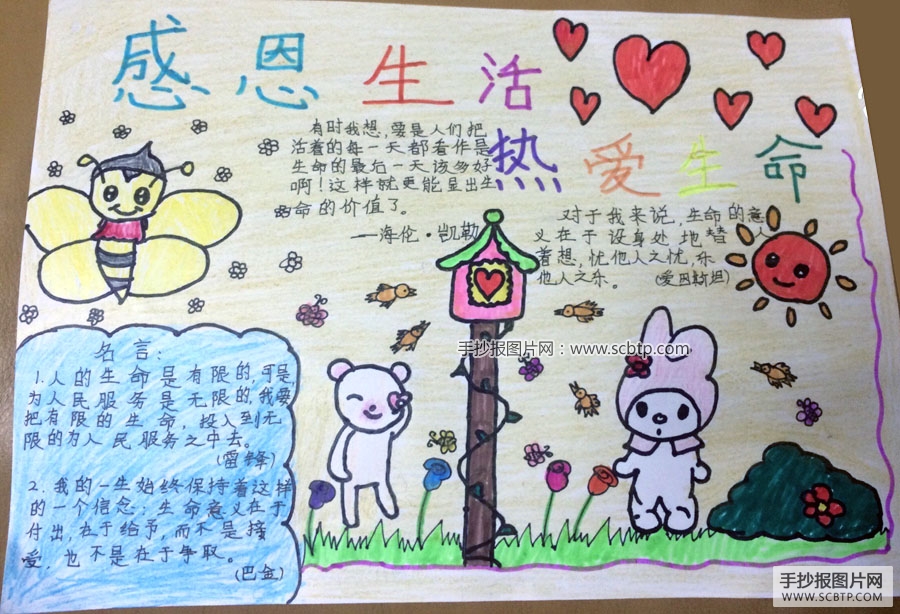 感恩生活
热爱生命
有时我想,要是人们把
活着的每一天都看作是
生命的最后一天该多好
啊!这样就更能显出生
命的价值了。
——海伦·凯勒
对于我来说,生命的意
义在于设身处地替人
着想,忧他人之忧,乐
他人之乐。(爱因斯坦)
名言:
1.人的生命是有限的,可是
为人民服务是无限的,我要
把有限的生命,投入到无
限的为人民服务之中去。
(雷锋)
2.我的一生始终保持着这样
的一个信念:生命意义在于
付出,在于给予,而不是接
爱,也不是在于争取。
(巴金)
手抄报图片网:www.scbtp.com
手抄报图片网
WWW.SCBTP.COM